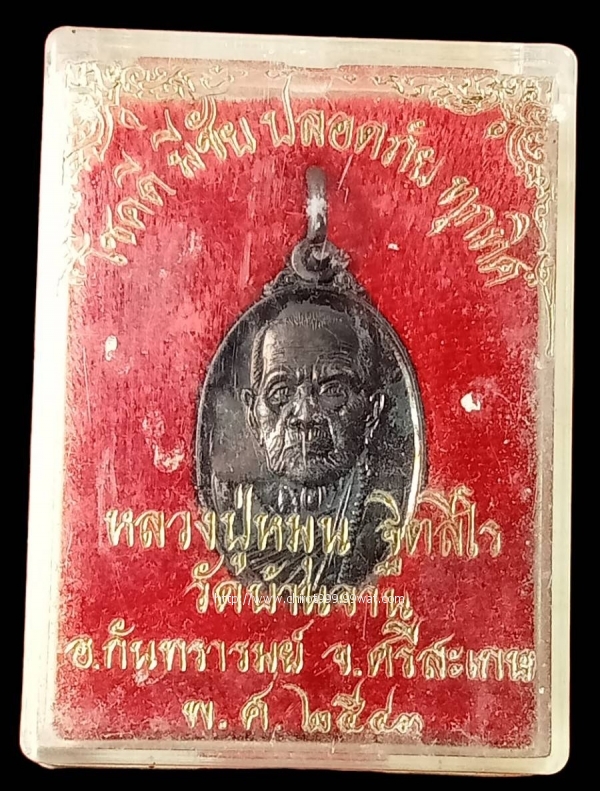 โชคดี มีชัย ปลอดภัย ทุกทิศ
หลวงปู่หมุน ฐิตสีโร
วัดบ้านจาน
อ.กันทรารมย์ จ.ศรีสะเกษ
พ.ศ.๒๕๔๓